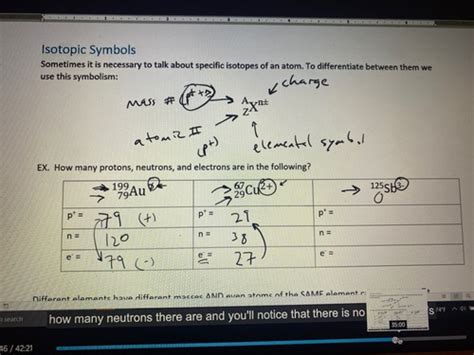 Isotopic Symbols
Sometimes it is necessary to talk about specific isotopes of an atom. To differentiate between them we
use this symbolism:
charge
mass # (p+ + n)
A X n±
Z
atomic #
(p+)
elemental symbol
EX. How many protons, neutrons, and electrons are in the following?
199 Au
79
67 Cu 2+
29
125 Sb 3-
p+ = 79 (+)
p+ = 29
p+ =
n = 120
n = 38
n =
e- = 79 (-)
e- = 27
e- =
Different elements have different masses AND even atoms of the SAME element
how many neutrons there are and you'll notice that there is no
35:00
46 / 42:21
search